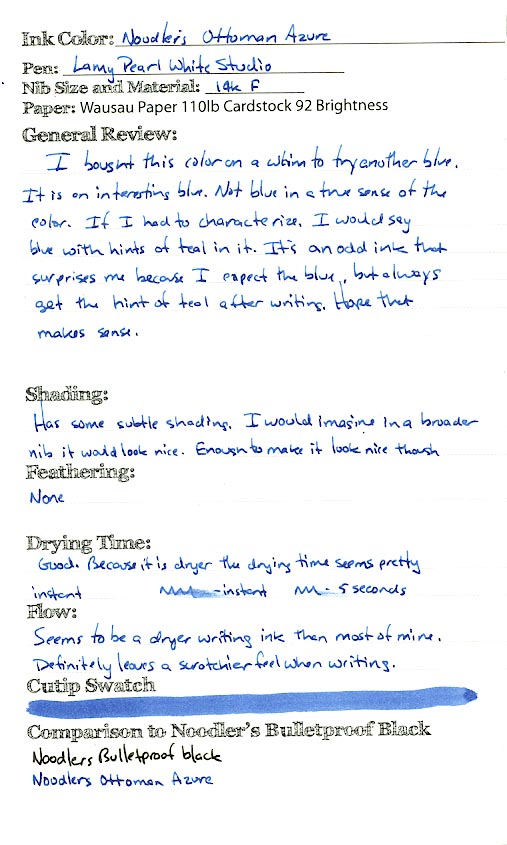 Ink Color: Noodler's Ottoman Azure
Pen: Lamy Pearl White Studio
Nib Size and Material: 14k F
Paper: Wausau Paper 110lb Cardstock 92 Brightness
General Review:
I bought this color on a whim to try another blue.
It is an interesting blue. Not blue in a true sense of the
color. If I had to characterize, I would say
blue with hints of teal in it. It's an odd ink that
surprises me because I expect the blue, but always
get the hint of teal after writing. Hope that
makes sense.
Shading:
Has some subtle shading. I would imagine in a broader
nib it would look nice. Enough to make it look nice though
Feathering:
None
Drying Time:
Good. Because it is dryer the drying time seems pretty
instant - instant - 5 seconds
Flow:
Seems to be a dryer writing ink than most of mine.
Definitely leaves a scratchier feel when writing.
Cutip Swatch
Comparison to Noodler's Bulletproof Black
Noodlers Bulletproof black
Noodlers Ottoman Azure